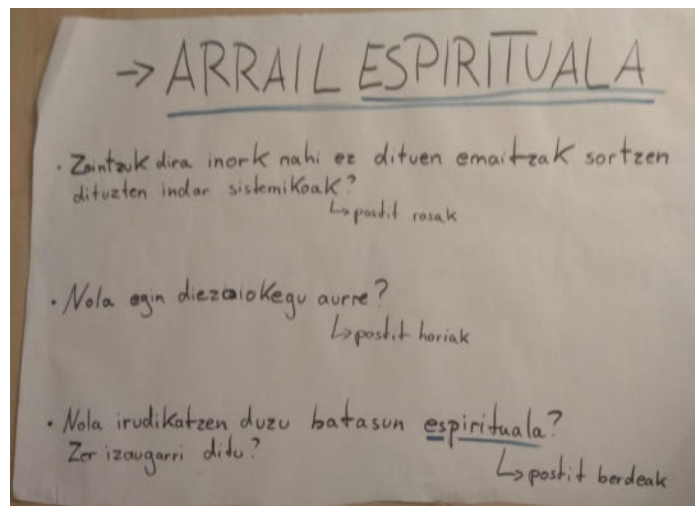 → ARRAIL ESPIRITUALA
• Zeintzuk dira inork nahi ez dituen emaitzak sortzen
dituzten indar sistemikoak?
↳ postit rosak
• Nola egin diezaiokegu aurre?
↳ postit horiak
• Nola irudikatzen duzu batasun espirituala?
Zer izaugarri ditu?
↳ postit berdeak